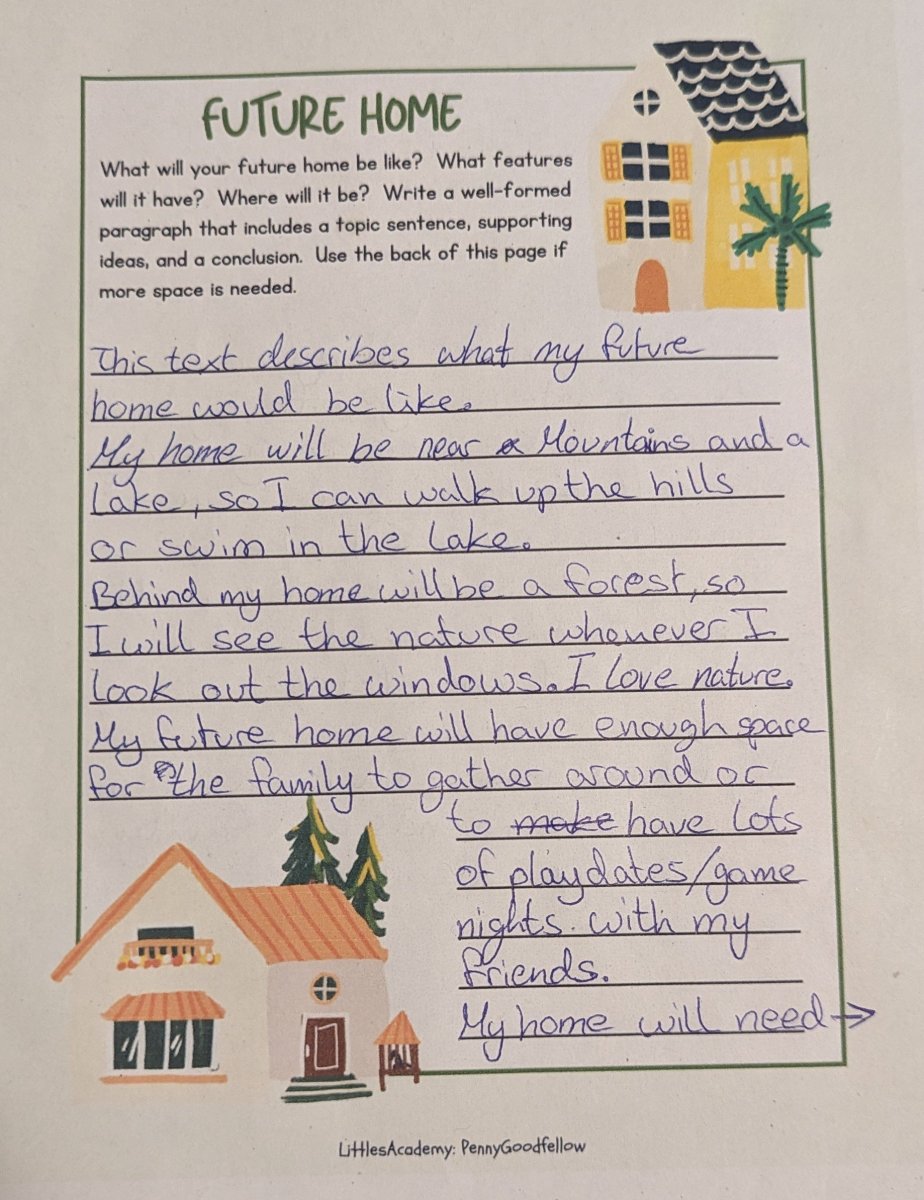 FUTURE HOME
What will your future home be like? What features
will it have? Where will it be? Write a well-formed
paragraph that includes a topic sentence, supporting
ideas, and a conclusion. Use the back of this page if
more space is needed.
This text describes what my future
home would be like.
My home will be near a Mountains and a
Lake, so I can walk up the hills
or swim in the lake.
Behind my home will be a forest, so
I will see the nature whenever I
look out the windows. I love nature.
My future home will have enough space
for the family to gather around or
to make have lots
of playdates/game
nights with my
friends.
My home will need →
LittlesAcademy: PennyGoodfellow